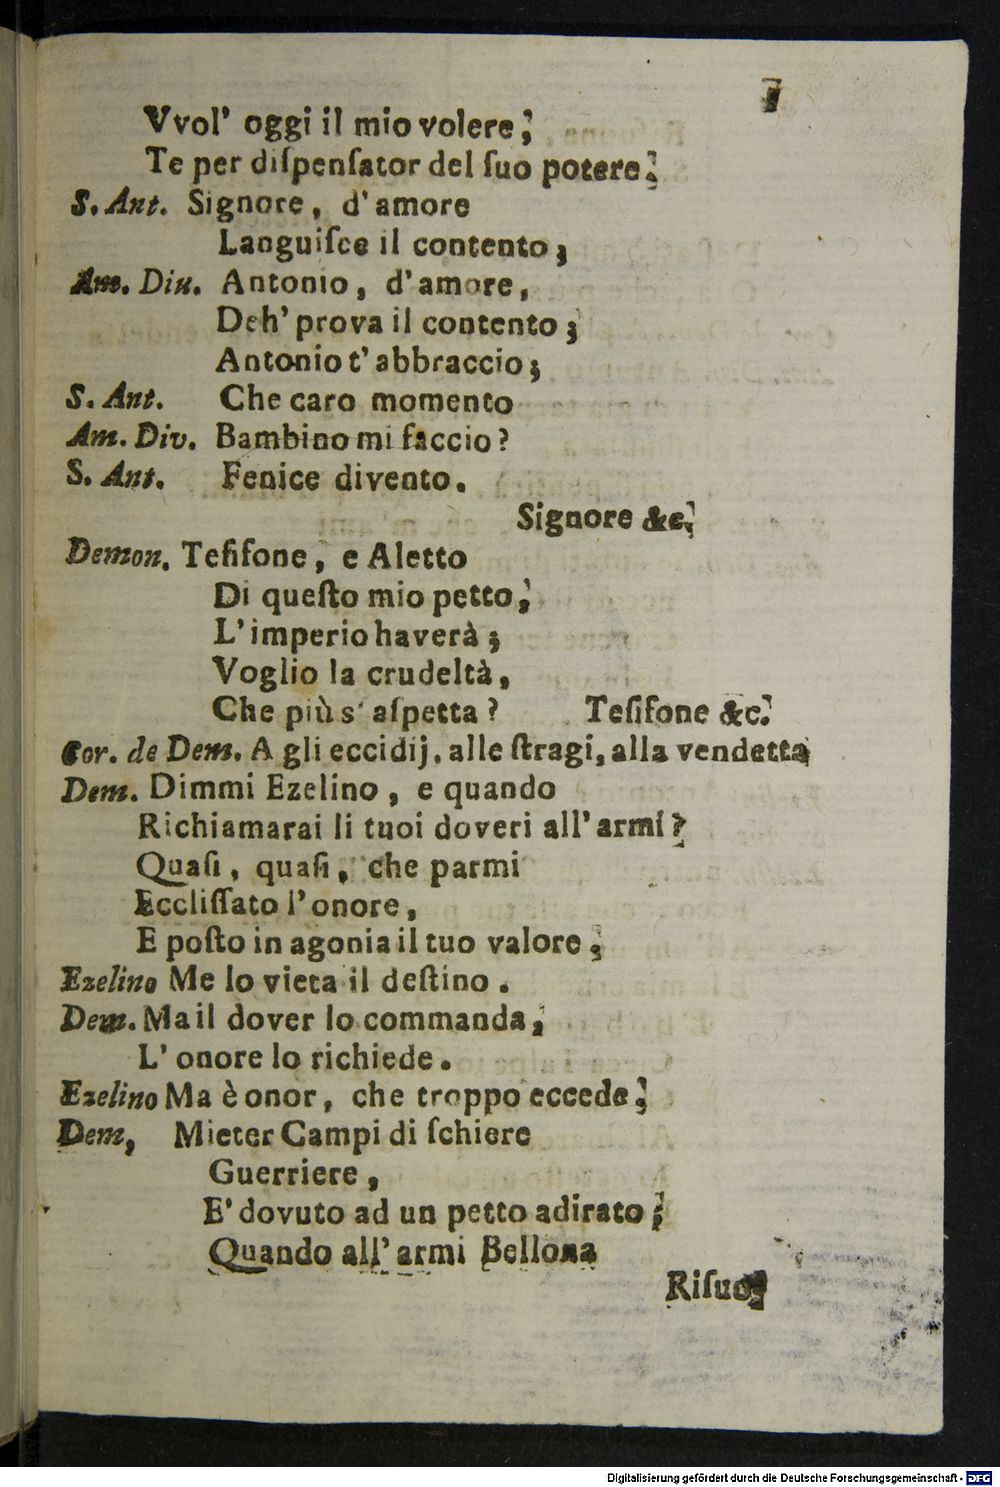 7
Vvol' oggi il mio volere;
Te per diſpenſator del ſuo potere.
S. Ant. Signore, d'amore
Languiſce il contento;
Am. Diu. Antonio, d'amore,
Deh' prova il contento;
Antonio t' abbraccio;
S. Ant. Che caro momento
Am. Div. Bambino mi faccio?
S. Ant. Fenice divento.
Signore &c.
Demon. Teſifone, e Aletto
Di queſto mio petto,
L' imperio haverà;
Voglio la crudeltà,
Che più s' aſpetta? Teſifone &c.
Cor. de Dem. A gli eccidij, alle ſtragi, alla vendetta
Dem. Dimmi Ezelino, e quando
Richiamarai li tuoi doveri all' armi?
Quaſi, quaſi, che parmi
Eccliſſato l' onore,
E poſto in agonia il tuo valore.
Ezelino Me lo vieta il deſtino.
Dem. Ma il dover lo commanda,
L' onore lo richiede.
Ezelino Ma è onor, che troppo eccede.
Dem, Mieter Campi di ſchiere
Guerriere,
E' dovuto ad un petto adirato;
Quando all' armi Bellona
Riſuo-
Digitalisierung gefördert durch die Deutsche Forschungsgemeinschaft - DFG